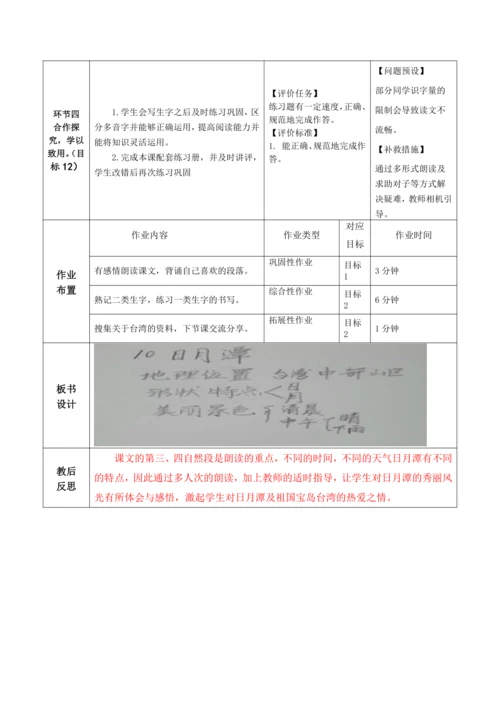 环节四
合作探
究，学以
致用。（目
标12）
1.学生会写生字之后及时练习巩固，区
分多音字并能够正确运用，提高阅读能力并
能将知识灵活运用。
2.完成本课配套练习册，并及时讲评，
学生改错后再次练习巩固
【评价任务】
练习题有一定速度，正确、
规范地完成作答。
【评价标准】
1. 能正确、规范地完成作
答。
【问题预设】
部分同学识字量的
限制会导致读文不
流畅。
【补救措施】
通过多形式朗读及
求助对子等方式解
决疑难，教师相机引
导。
作业
布置
作业内容
作业类型
对应
目标
作业时间
有感情朗读课文，背诵自己喜欢的段落。
巩固性作业
目标
1
3分钟
熟记二类生字，练习一类生字的书写。
综合性作业
目标
2
6分钟
搜集关于台湾的资料，下节课交流分享。
拓展性作业
目标
2
1分钟
板书
设计
10 日月潭
地理位置 台湾中部山区
形状特点 日
月
美丽景色 清晨
中午 晴
下雨
教后
反思
课文的第三、四自然段是朗读的重点，不同的时间，不同的天气日月潭有不同
的特点，因此通过多人次的朗读，加上教师的适时指导，让学生对日月潭的秀丽风
光有所体会与感悟，激起学生对日月潭及祖国宝岛台湾的热爱之情。